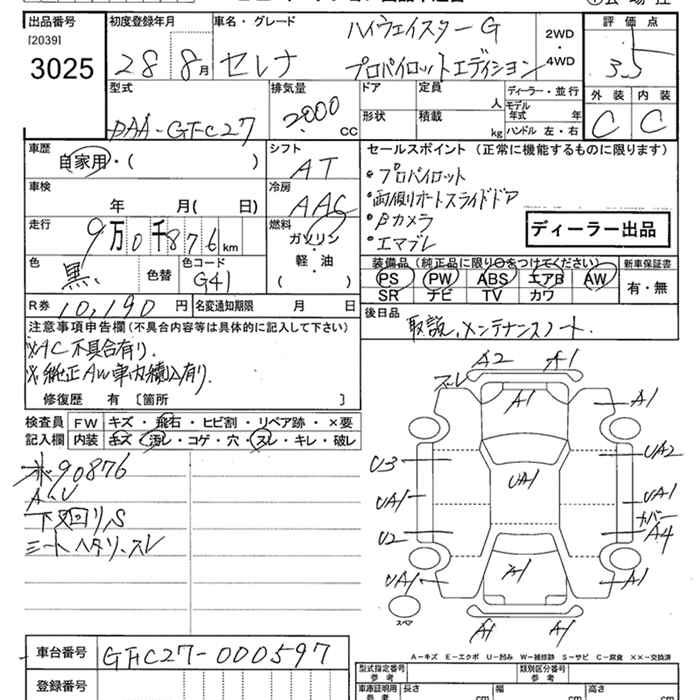 出品番号
[2039]
3025
初度登録年月
28 8月
車名・グレード
ハイウェイスターG
セレナ プロパイロットエディション
2WD
・
4WD
評価点
3.5
外装 内装
C C
型式
DAA-GFC27
排気量
2000 CC
ドア 定員 人
形状 積載 kg
ディーラー・並行
モデル年式 年
ハンドル 左・右
車歴
自家用・( )
シフト
AT
車検
年 月( 日)
冷房
AAC
走行
9万0千876km
燃料
ガソリン・軽・油
( )
色
黒
色替
色コード
G41
R券 10,190円
名変通知期限 月 日
セールスポイント (正常に機能するものに限ります)
・プロパイロット
・両側オートスライドドア
・Bカメラ
・エマブレ
ディーラー出品
装備品(純正品に限り○をつけてください)
PS PW ABS エアB AW
SR ナビ TV カワ
新車保証書
有・無
後日品
取説、メンテナンスノート.
注意事項申告欄(不具合内容等は具体的に記入して下さい)
※AC不具合有り.
※純正AW車内積込有り.
修復歴 有 [箇所 ]
検査員記入欄
FW キズ・飛石・ヒビ割・リペア跡・×要
内装 キズ・汚レ・コゲ・穴・スレ・キレ・破レ
90876
下廻りS
シートヘタリ、スレ
A2 A1
スレ
A1 A1
U3 UA2
UA1
UA1 UA1
カバー
U2 A4
UA1 A1 A1
スペア
A1 A1
A-キズ E-エクボ U-凹み W-補修跡 S-サビ C-腐食 XX-交換済
車台番号 GFC27-000597
登録番号
型式指定番号 参考
類別区分番号 参考
車庫証明用 参考
長さ cm 幅 cm 高さ cm